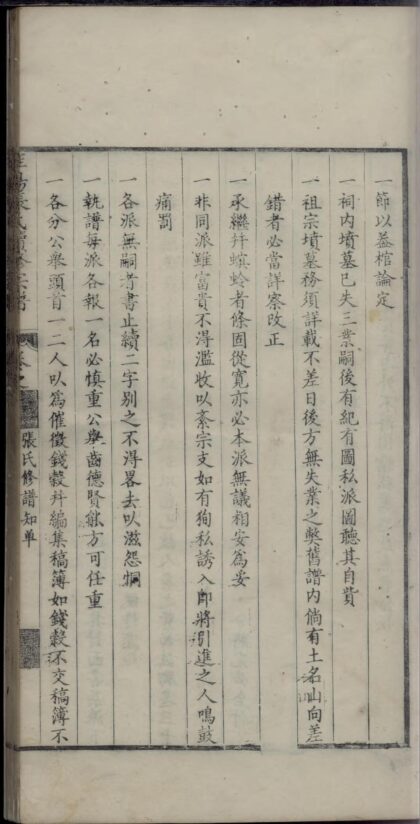 一節以蓋棺論定
一祠内墳墓已失三業嗣後有紀有圖私派圖聽其自費
一祖宗墳墓務須詳載不差日後方無失業之獘舊譜内倘有土名山向差
錯者必當詳察改正
一承繼幷螟蛉者條固從寛亦必本派無議相安為妥
一非同派雖富貴不得濫收以紊宗支如有狥私誘入即將引進之人鳴鼓
痛罰
一各派無嗣者書止續二字别之不得畧去以滋怨恫
一執譜每派各報一名必慎重公舉齒德賢能方可任重
一各分公舉頭首一二人以為催徵錢穀幷編集稿簿如錢穀不交稿簿不
張氏修譜知单